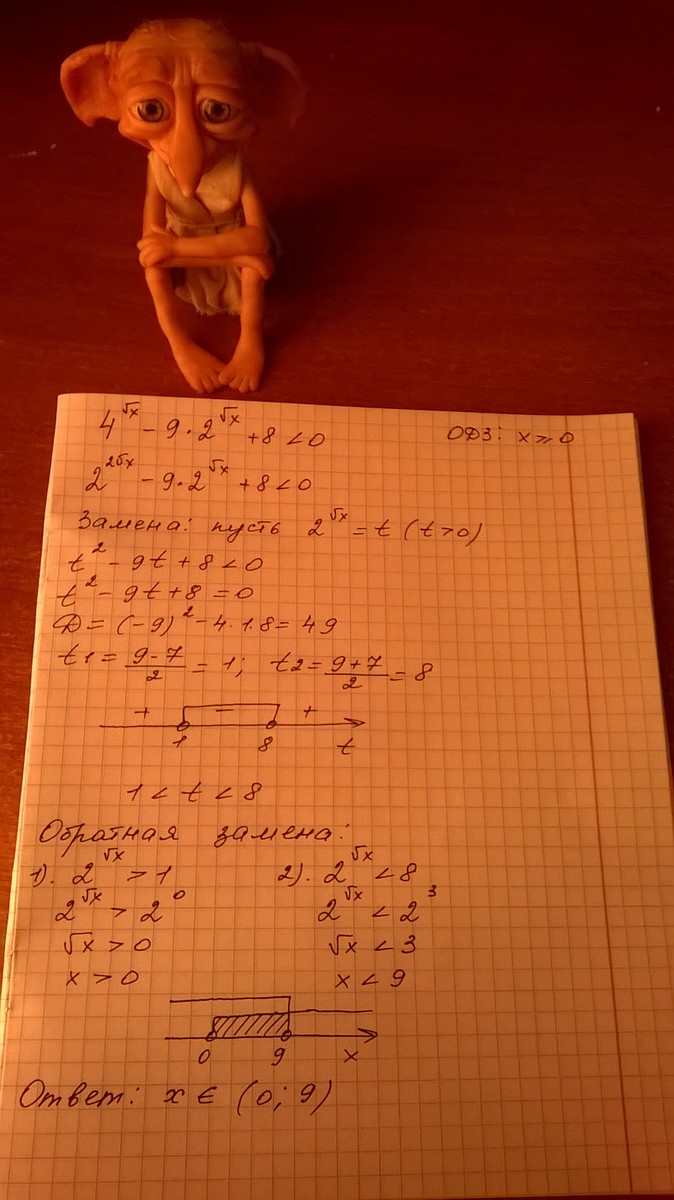 4^√x - 9 · 2^√x + 8 < 0 ОДЗ: x ≥ 0
2^2√x - 9 · 2^√x + 8 < 0
Замена: пусть 2^√x = t (t > 0)
t^2 - 9t + 8 < 0
t^2 - 9t + 8 = 0
D = (-9)^2 - 4·1·8 = 49
t1 = (9-7)/2 = 1; t2 = (9+7)/2 = 8
+ - +
1 8 t
1 < t < 8
Обратная замена:
1). 2^√x > 1 2). 2^√x < 8
2^√x > 2^0 2^√x < 2^3
√x > 0 √x < 3
x > 0 x < 9
0 9 x
Ответ: x ∈ (0; 9)